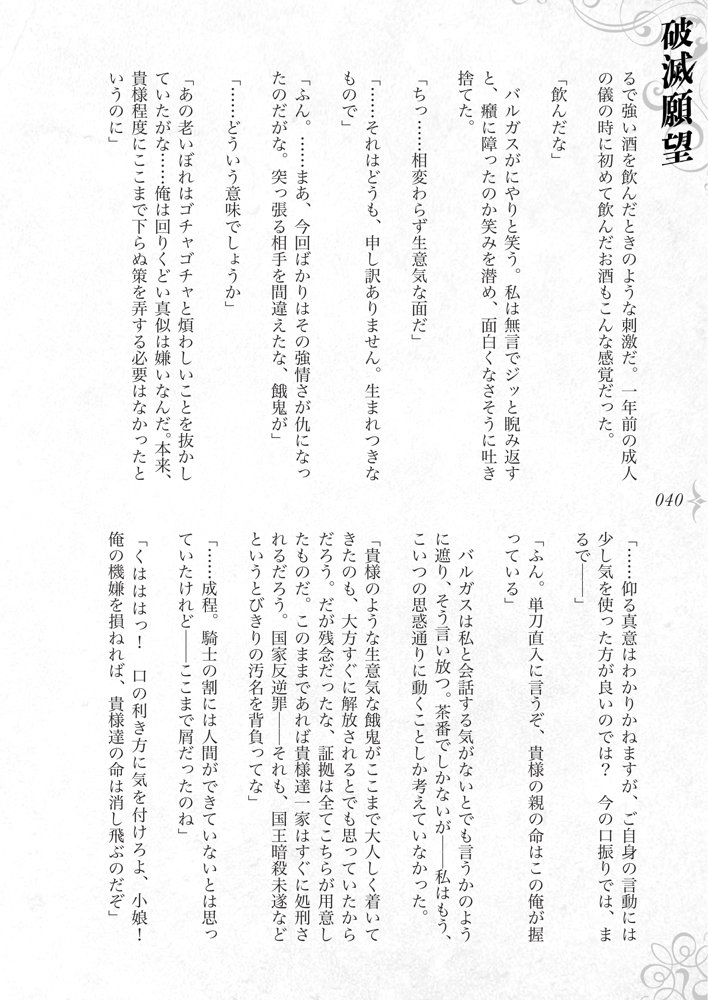 破滅願望
るで強い酒を飲んだときのような刺激だ。一年前の成人
の儀の時に初めて飲んだお酒もこんな感覚だった。
「飲んだな」
　バルガスがにやりと笑う。私は無言でジッと睨み返す
と、癪に障ったのか笑みを潜め、面白くなさそうに吐き
捨てた。
「ちっ……相変わらず生意気な面だ」
「……それはどうも、申し訳ありません。生まれつきな
もので」
「ふん。……まあ、今回ばかりはその強情さが仇になっ
たのだがな。突っ張る相手を間違えたな、餓鬼が」
「……どういう意味でしょうか」
「あの老いぼれはゴチャゴチャと煩わしいことを抜かし
ていたがな……俺は回りくどい真似は嫌いなんだ。本来、
貴様程度にここまで下らぬ策を弄する必要はなかったと
いうのに」
040
「……仰る真意はわかりかねますが、ご自身の言動には
少し気を使った方が良いのでは？　今の口振りでは、ま
るで――」
「ふん。単刀直入に言うぞ、貴様の親の命はこの俺が握
っている」
　バルガスは私と会話する気がないとでも言うかのよう
に遮り、そう言い放つ。茶番でしかないが――私はもう、
こいつの思惑通りに動くことしか考えていなかった。
「貴様のような生意気な餓鬼がここまで大人しく着いて
きたのも、大方すぐに解放されるとでも思っていたから
だろう。だが残念だったな、証拠は全てこちらが用意し
たものだ。このままであれば貴様達一家はすぐに処刑さ
れるだろう。国家反逆罪――それも、国王暗殺未遂など
というとびきりの汚名を背負ってな」
「……成程。騎士の割には人間ができていないとは思っ
ていたけれど――ここまで屑だったのね」
「くはははっ！　口の利き方に気を付けろよ、小娘！
俺の機嫌を損ねれば、貴様達の命は消し飛ぶのだぞ」